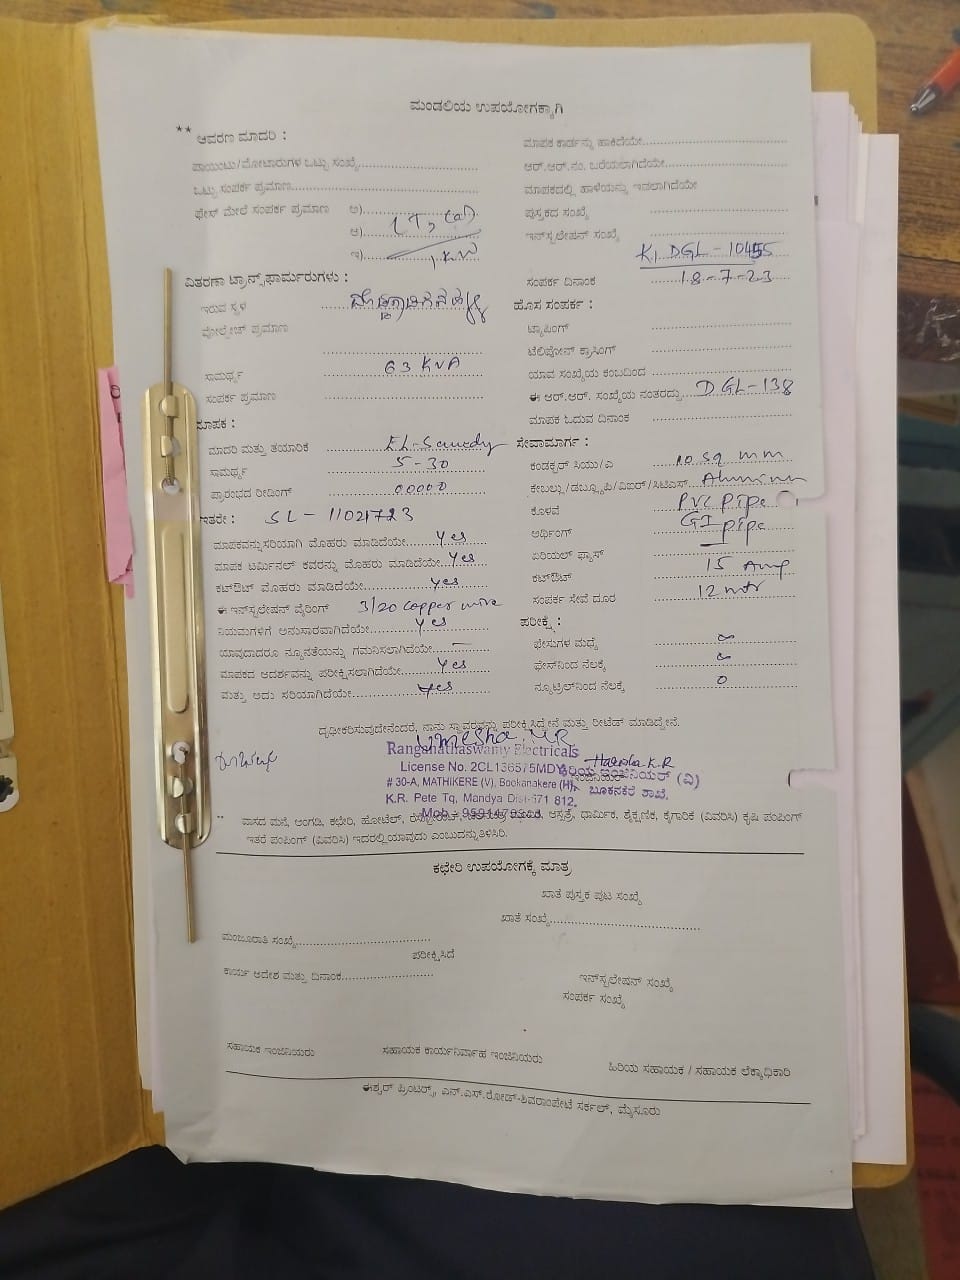 ಮಂಡಲಿಯ ಉಪಯೋಗಕ್ಕಾಗಿ
** ಆವರಣ ಮಾದರಿ :
ಪಾಯಿಂಟು/ಮೋಟಾರುಗಳ ಒಟ್ಟು ಸಂಖ್ಯೆ
ಒಟ್ಟು ಸಂಪರ್ಕ ಪ್ರಮಾಣ
ಫೇಸ್ ಮೇಲೆ ಸಂಪರ್ಕ ಪ್ರಮಾಣ ಅ)
ಆ) LT2 (a)
ಇ) 1 KW
ವಿತರಣಾ ಟ್ರಾನ್ಸ್‌ಫಾರ್ಮರುಗಳು :
ಇರುವ ಸ್ಥಳ
ವೋಲ್ಟೇಜ್ ಪ್ರಮಾಣ
ಸಾಮರ್ಥ್ಯ 63 KVA
ಸಂಪರ್ಕ ಪ್ರಮಾಣ
ಮಾಪಕ :
ಮಾದರಿ ಮತ್ತು ತಯಾರಿಕೆ
ಸಾಮರ್ಥ್ಯ 5-30
ಪ್ರಾರಂಭದ ರೀಡಿಂಗ್ 00000
ಇತರೇ : SL - 11021723
ಮಾಪಕವನ್ನು ಸರಿಯಾಗಿ ಮೊಹರು ಮಾಡಿದೆಯೇ Yes
ಮಾಪಕ ಟರ್ಮಿನಲ್ ಕವರನ್ನು ಮೊಹರು ಮಾಡಿದೆಯೇ Yes
ಕಟ್‌ಔಟ್ ಮೊಹರು ಮಾಡಿದೆಯೇ Yes
ಈ ಇನ್ಸ್‌ಟಲೇಷನ್ ವೈರಿಂಗ್ 3/20 copper wire
ನಿಯಮಗಳಿಗೆ ಅನುಸಾರವಾಗಿದೆಯೇ Yes
ಯಾವುದಾದರೂ ನ್ಯೂನತೆಯನ್ನು ಗಮನಿಸಲಾಗಿದೆಯೇ
ಮಾಪಕದ ಆದರ್ಶವನ್ನು ಪರೀಕ್ಷಿಸಲಾಗಿದೆಯೇ Yes
ಮತ್ತು ಅದು ಸರಿಯಾಗಿದೆಯೇ Yes
ಮಾಪಕ ಕಾರ್ಡನ್ನು ಹಾಕಿದೆಯೇ
ಆರ್.ಆರ್.ನಂ. ಬರೆಯಲಾಗಿದೆಯೇ
ಮಾಪಕದಲ್ಲಿ ಹಾಳೆಯನ್ನು ಇಡಲಾಗಿದೆಯೇ
ಪುಸ್ತಕದ ಸಂಖ್ಯೆ
ಇನ್ಸ್‌ಟಲೇಷನ್ ಸಂಖ್ಯೆ
ಸಂಪರ್ಕ ದಿನಾಂಕ 18-7-23
ಹೊಸ ಸಂಪರ್ಕ :
ಟ್ಯಾಪಿಂಗ್
ಟೆಲಿಫೋನ್ ಕ್ರಾಸಿಂಗ್
ಯಾವ ಸಂಖ್ಯೆಯ ಕಂಬದಿಂದ
ಈ ಆರ್.ಆರ್. ಸಂಖ್ಯೆಯ ನಂತರದ್ದು DGL-138
ಮಾಪಕ ಓದುವ ದಿನಾಂಕ
ಸೇವಾಮಾರ್ಗ :
ಕಂಡಕ್ಟರ್ ಸಿಯು/ಎ 10 sq mm
ಕೇಬಲ್ಲು/ಡಬ್ಲ್ಯೂಪಿ/ವಿಐಆರ್/ಸಿಟಿಎಸ್
ಕೊಳವೆ PVC pipe
ಅರ್ಥಿಂಗ್ GI pipe
ಏರಿಯಲ್ ಫ್ಯೂಸ್
ಕಟ್‌ಔಟ್ 15 Amp
ಸಂಪರ್ಕ ಸೇವೆ ದೂರ 12 mtr
ಪರೀಕ್ಷೆ :
ಫೇಸುಗಳ ಮಧ್ಯೆ ∞
ಫೇಸ್‌ನಿಂದ ನೆಲಕ್ಕೆ ∞
ನ್ಯೂಟ್ರಲ್‌ನಿಂದ ನೆಲಕ್ಕೆ 0
ದೃಢೀಕರಿಸುವುದೇನೆಂದರೆ, ನಾನು ಸ್ಥಾವರವನ್ನು ಪರೀಕ್ಷಿಸಿದ್ದೇನೆ ಮತ್ತು ರೀಟೆಡ್ ಮಾಡಿದ್ದೇನೆ.
Ranganathaswamy Electricals
License No. 2CL136575MDY
# 30-A, MATHIKERE (V), Bookanakere (H),
K.R. Pete Tq, Mandya Dist-571 812.
Harsha K.R
ಕಿರಿಯ ಇಂಜಿನಿಯರ್ (ವಿ)
ಬೂಕನಕೆರೆ ಶಾಖೆ.
** ವಾಸದ ಮನೆ, ಅಂಗಡಿ, ಕಛೇರಿ, ಹೋಟೆಲ್, ಆಸ್ಪತ್ರೆ, ಧಾರ್ಮಿಕ, ಶೈಕ್ಷಣಿಕ, ಕೈಗಾರಿಕೆ (ವಿವರಿಸಿ) ಕೃಷಿ ಪಂಪಿಂಗ್
ಇತರೆ ಪಂಪಿಂಗ್ (ವಿವರಿಸಿ) ಇದರಲ್ಲಿ ಯಾವುದು ಎಂಬುದನ್ನು ತಿಳಿಸಿರಿ.
ಕಛೇರಿ ಉಪಯೋಗಕ್ಕೆ ಮಾತ್ರ
ಖಾತೆ ಪುಸ್ತಕ ಪುಟ ಸಂಖ್ಯೆ
ಖಾತೆ ಸಂಖ್ಯೆ
ಮಂಜೂರಾತಿ ಸಂಖ್ಯೆ
ಪರೀಕ್ಷಿಸಿದೆ
ಕಾರ್ಯ ಆದೇಶ ಮತ್ತು ದಿನಾಂಕ
ಇನ್ಸ್‌ಟಲೇಷನ್ ಸಂಖ್ಯೆ
ಸಂಪರ್ಕ ಸಂಖ್ಯೆ
ಸಹಾಯಕ ಇಂಜಿನಿಯರು ಸಹಾಯಕ ಕಾರ್ಯನಿರ್ವಾಹ ಇಂಜಿನಿಯರು ಹಿರಿಯ ಸಹಾಯಕ / ಸಹಾಯಕ ಲೆಕ್ಕಾಧಿಕಾರಿ
ಈಶ್ವರ್ ಪ್ರಿಂಟರ್ಸ್, ಎನ್.ಎಸ್.ರೋಡ್-ಶಿವರಾಂಪೇಟೆ ಸರ್ಕಲ್, ಮೈಸೂರು